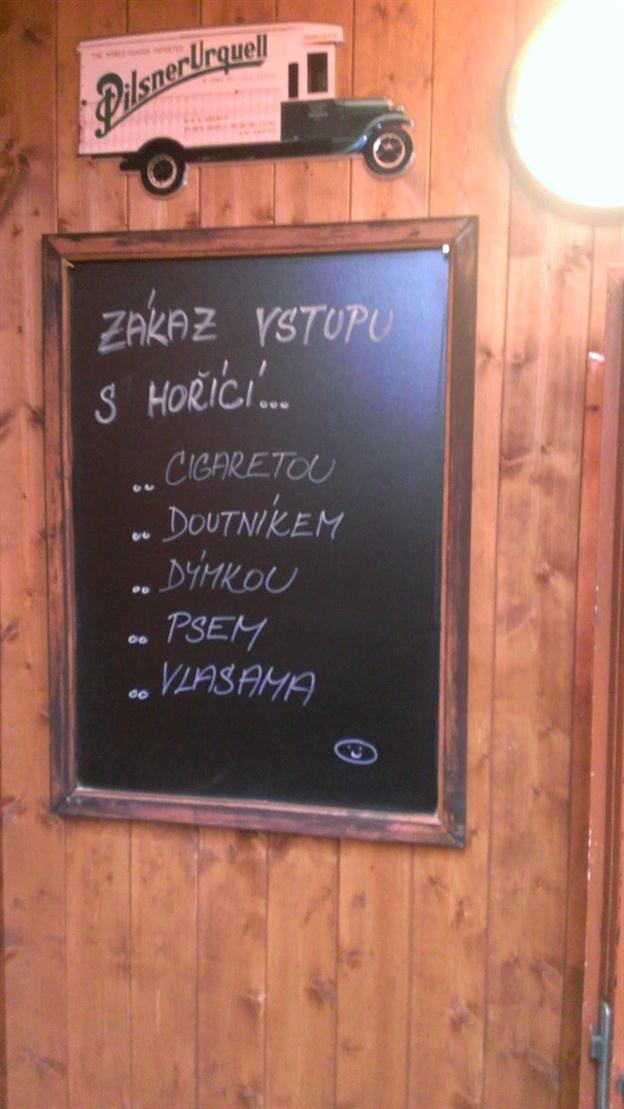 THE WORLD-FAMOUS IMPORTED
PilsnerUrquell
ZÁKAZ VSTUPU
S HOŘÍCÍ...
.. CIGARETOU
.. DOUTNÍKEM
.. DÝMKOU
.. PSEM
.. VLASAMA